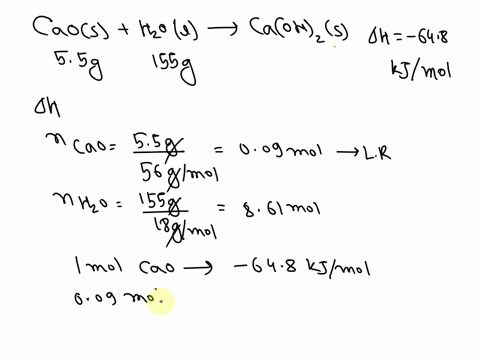 CaO(s) + H₂O(l) → Ca(OH)₂(s) ΔH = -64.8
5.5g 155g kJ/mol
ΔH
nCaO = 5.5g / 56g/mol = 0.09mol → L.R
nH₂O = 155g / 18g/mol = 8.61mol
1mol CaO → -64.8 kJ/mol
0.09 mo